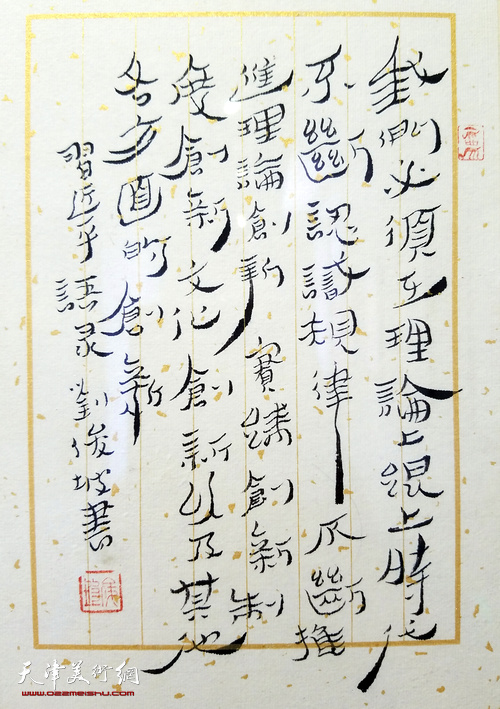 我們必須在理論上跟上時代
不斷認識規律 不斷推
進理論創新 實踐創新 制
度創新 文化創新以及其他
各方面的創新
習近平語录 劉俊坡書
天津美術網
www.022meishu.com